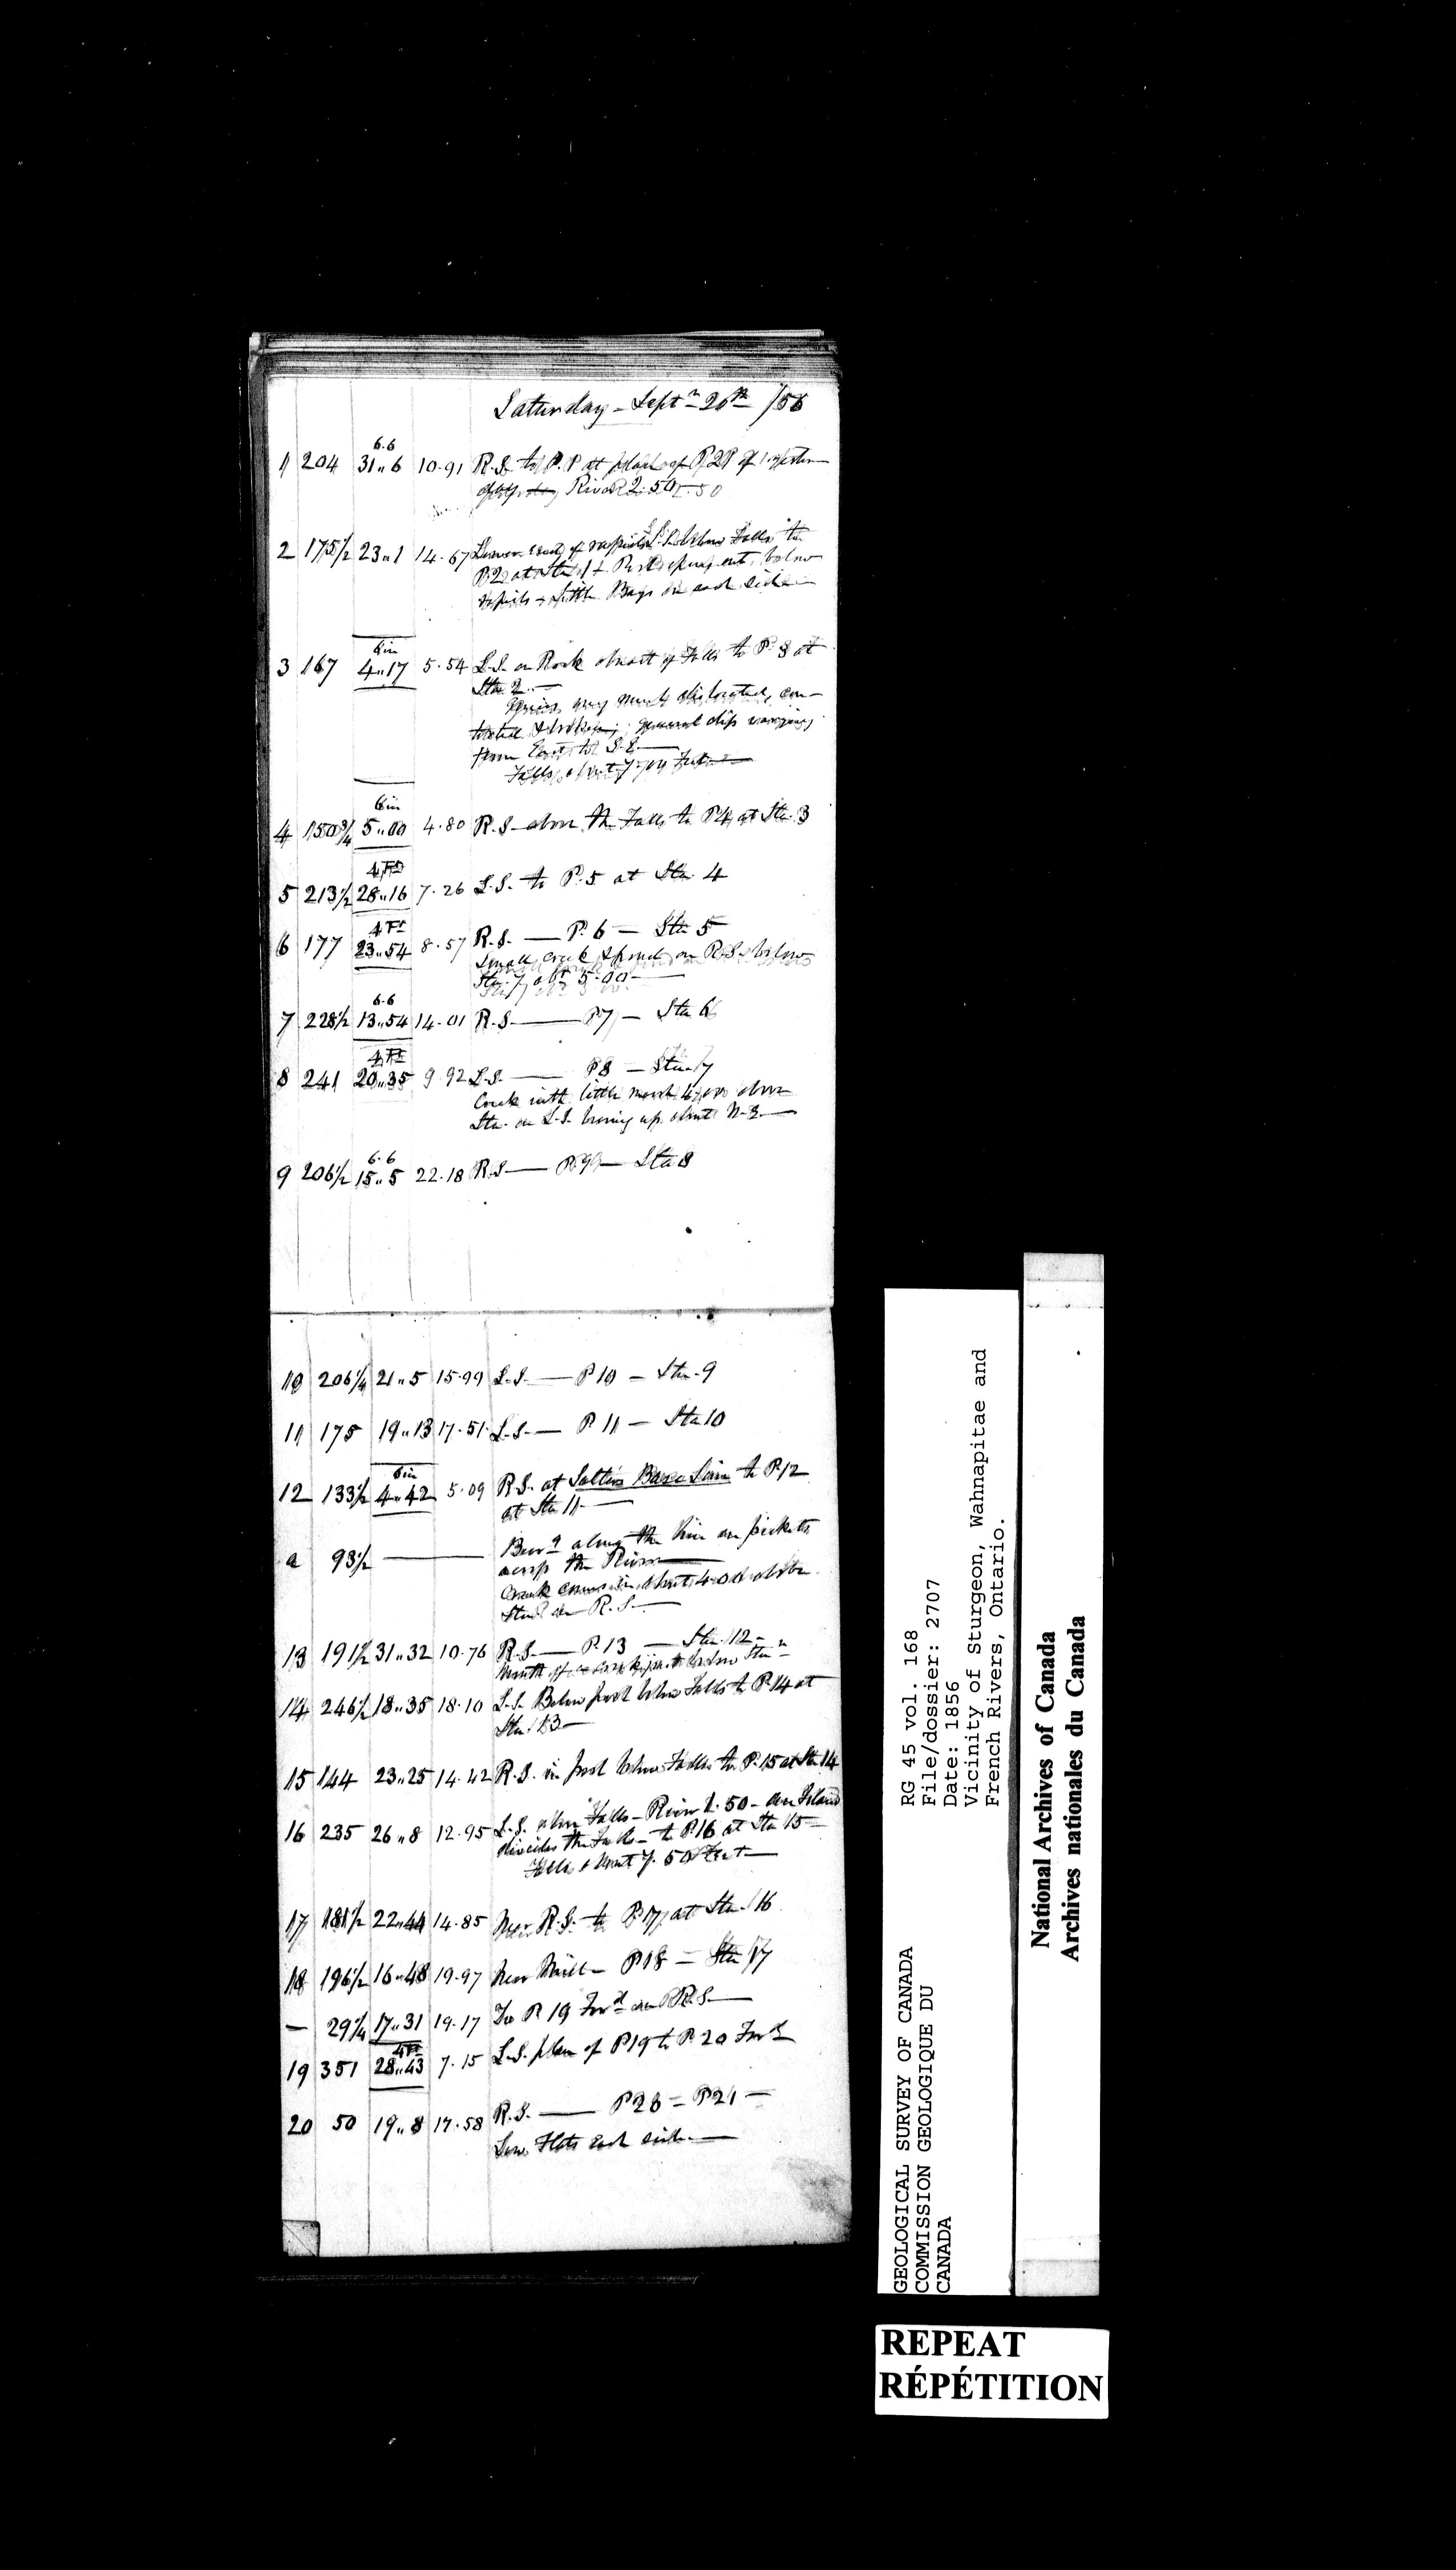 Saturday - Septr 20th /56
6.6
1 204 31..6 10.91 R.S. to P. 1 at place of P.21 of
River 2.50
2 175 1/2 23..1 14.67 Lower end of rapids L.S. below Falls to
P.2 at Sta 1 + below
rapids - little Bays on each side
6 in
3 167 4..17 5.54 L.S. on Rock abreast of Falls to P. 3 at
Sta 2. —
Gneiss very much dislocated, con-
torted & broken; general dip varying
from East to S.E. —
Falls about 7.00 Feet —
6 in
4 150 3/4 5..00 4.80 R.S. above the Falls to P.4 at Sta. 3
4 Ft
5 213 1/2 28..16 7.26 L.S. to P.5 at Sta. 4
4 Ft
6 177 23..54 8.57 R.S. — P. 6 — Sta 5
Small creek & pond on R.S. below
Sta. 7 abt 5.00 —
6.6
7 228 1/2 13..54 14.01 R.S. — P7 — Sta 6
4 Ft
8 241 20..35 9.92 L.S. — P8 — Sta. 7
Creek with little marsh 4.00 above
Sta. on L.S. bearing up about N.E. —
6.6
9 206 1/2 15..5 22.18 R.S. — P.9 — Sta 8
10 206 1/4 21..5 15.99 L.S. — P 10 — Sta. 9
11 175 19..13 17.51 L.S. — P. 11 — Sta 10
6 in
12 133 1/2 4..42 5.09 R.S. at Salter's Base Line to P.12
at Sta 11 —
a 93 1/2 — Bearg along the line on pickets
across the River —
Creek comes in about 4.00 above
Sta on R.S. —
13 191 1/2 31..32 10.76 R.S. — P. 13 — Sta. 12 —
Mouth of a creek just below Stan —
14 246 1/2 18..35 18.10 L.S. Below pool below Falls to P.14 at
Sta. 13 —
15 144 23..25 14.42 R.S. in pool below Falls to P.15 at Sta 14
16 235 26..8 12.95 L.S. above Falls - River 1.50 - an Island
divides the Falls - to P.16 at Sta 15 —
Falls about 7.50 Feet —
17 181 1/2 22..44 14.85 Near R.S. to P.17 at Sta. 16
18 196 1/2 16..48 19.97 Near Midd - P18 — Sta 17
— 29 1/4 17..31 19.17 To P. 19 Forwd on R.S. —
4 Ft
19 351 28..43 7.15 L.S. place of P19 to P. 20 Forwd
20 50 19..8 17.58 R.S. — P20 — P21 —
Low Flats each side —
GEOLOGICAL SURVEY OF CANADA
COMMISSION GEOLOGIQUE DU
CANADA
RG 45 vol. 168
File/dossier: 2707
Date: 1856
Vicinity of Sturgeon, Wahnapitae and
French Rivers, Ontario.
National Archives of Canada
Archives nationales du Canada
REPEAT
RÉPÉTITION